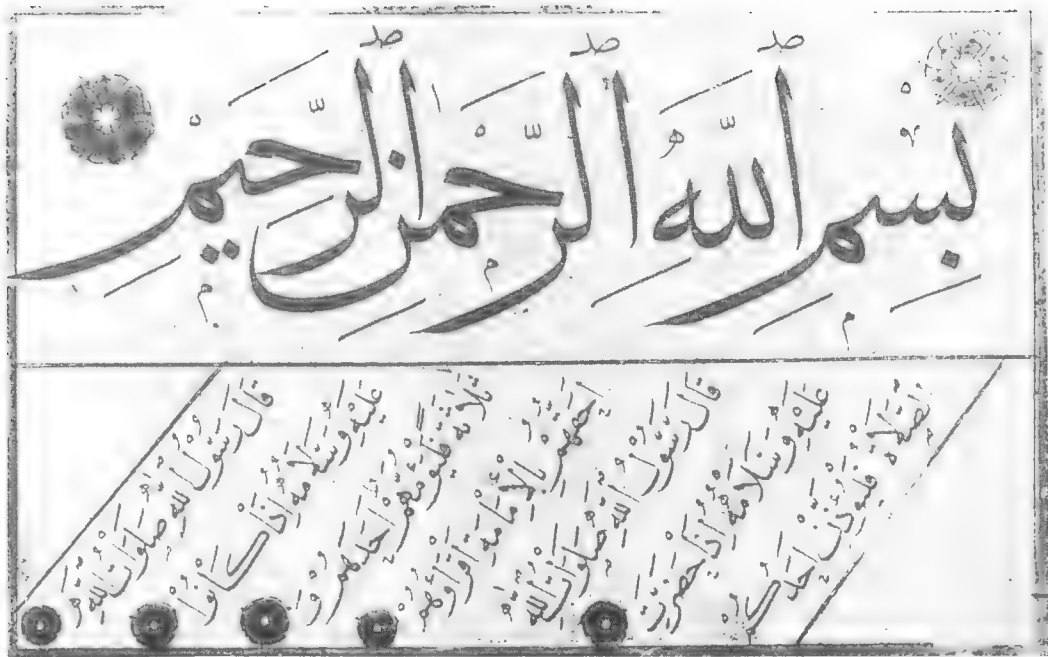 بسم الله الرحمن الرحيم
قال رسول الله صلوات الله
عليه وسلامه اذا كانوا
ثلاثة فليؤمهم احدهم و
احقهم بالامامة اقرؤهم
قال رسول الله صلوات الله
عليه وسلامه اذا حضرت
الصلاة فليؤذن احدكم